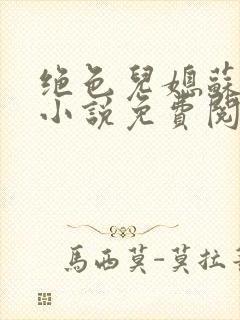 绝色兒媳蘇
小說免費閱
馬西莫-莫拉